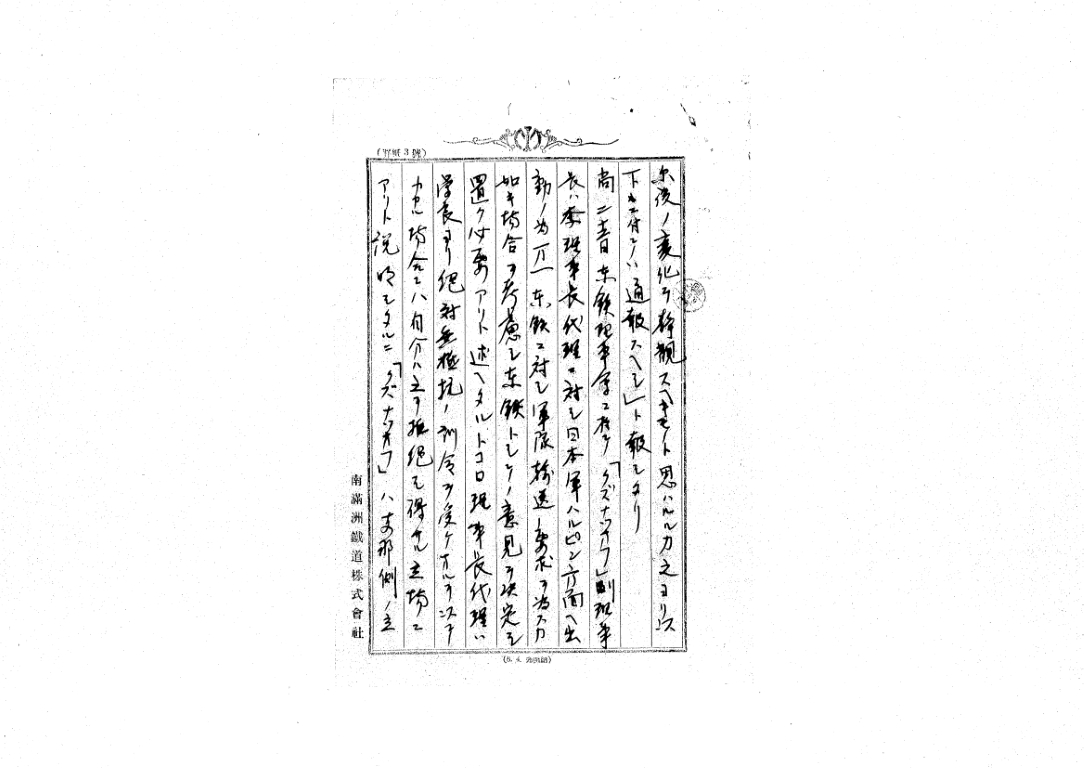 (宵順3號)
尓後ノ変化ヲ静観スヘキモノト思ハルルカ之ヨリ以
下ハニ付テハ通報スヘシ」ト報シタリ
尚二十五日東鉄理事会ニ於テ「クズナツオフ」副理事
長ハ李理事長代理ニ対シ日本軍ハルピン方面ヘ出
動ノ為万一東鉄ニ対シ軍隊輸送ノ要求ヲ為スカ
如キ場合ヲ考慮シ東鉄トシテノ意見ヲ決定シ
置ク必要アリト述ヘタルトコロ理事長代理ハ
学良ヨリ絶対無抵抗ノ訓令ヲ受ケオルヲ以テ
カカル場合ニハ自分ハ之ヲ拒絶シ得サル立場ニ
アリト説明シタルニ「クズナツオフ」ハ支那側ノ立
南滿洲鐵道株式會社